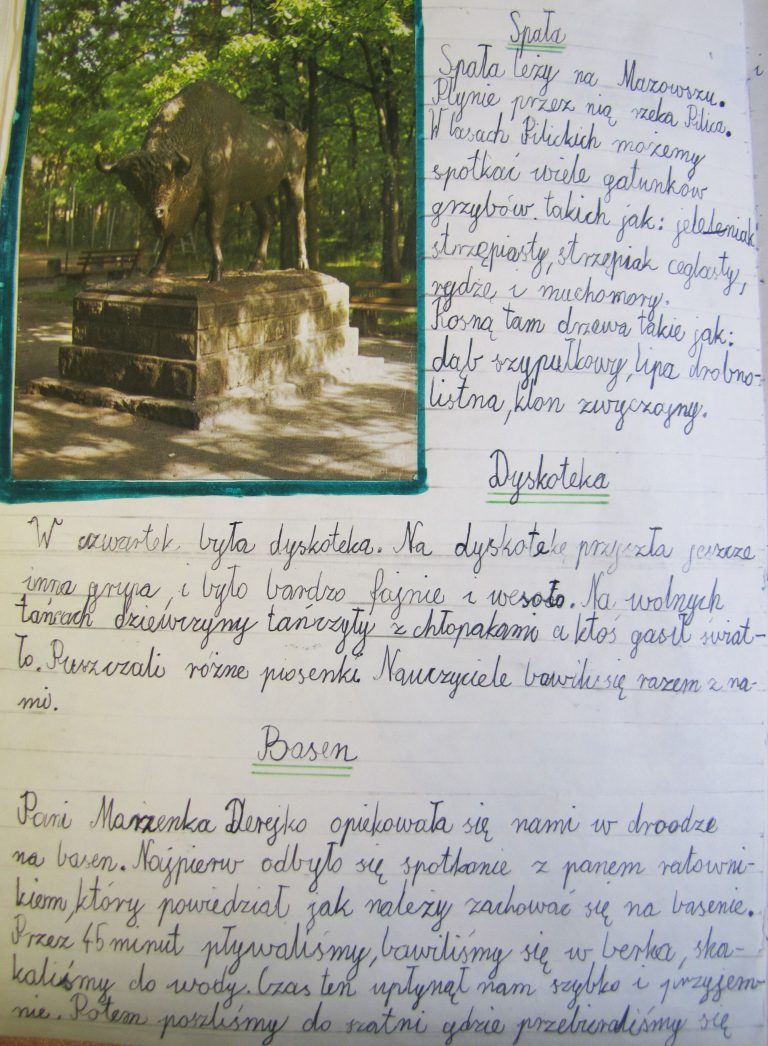 Spała
Spała leży na Mazowszu.
Płynie przez nią rzeka Pilica.
W lasach Pilickich możemy
spotkać wiele gatunków
grzybów takich jak: jeleleniak
strzępiasty, strzępiak ceglasty,
rydze i muchomory.
Rosną tam drzewa takie jak:
dąb szypułkowy, lipa drobno-
listna, klon zwyczajny.
Dyskoteka
W czwartek była dyskoteka. Na dyskotekę przyszła jeszcze
inna grupa i było bardzo fajnie i wesoło. Na wolnych
tańcach dziewczyny tańczyły z chłopakami a ktoś gasił świat-
ło. Puszczali różne piosenki. Nauczyciele bawili się razem z na-
mi.
Basen
Pani Marzenka Derejko opiekowała się nami w droodze
na basen. Najpierw odbyło się spotkanie z panem ratowni-
kiem, który powiedział jak należy zachować się na basenie.
Przez 45 minut pływaliśmy, bawiliśmy się w berka, ska-
kaliśmy do wody. Czas ten upłynął nam szybko i przyjem-
nie. Potem poszliśmy do szatni gdzie przebieraliśmy się